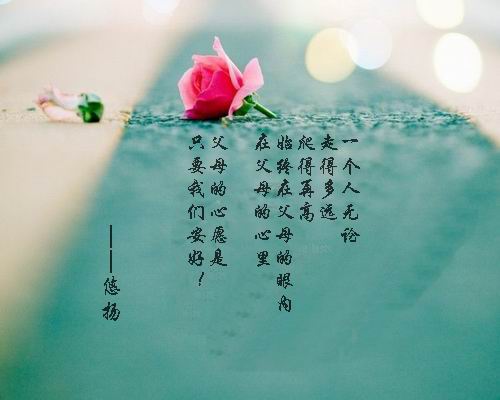 一个人无论
走得多远
爬得再高
始终在父母的眼内
在父母的心里
父母的心愿是
只要我们安好！
——悠扬